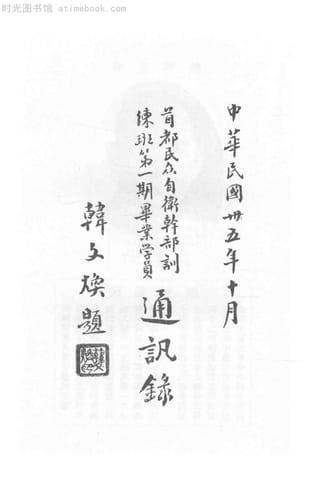 时光图书馆 atimebook.com
中華民國卅五年十月
首都民众自衛幹部訓
練班第一期畢業学員
通訊錄
韓文煥題